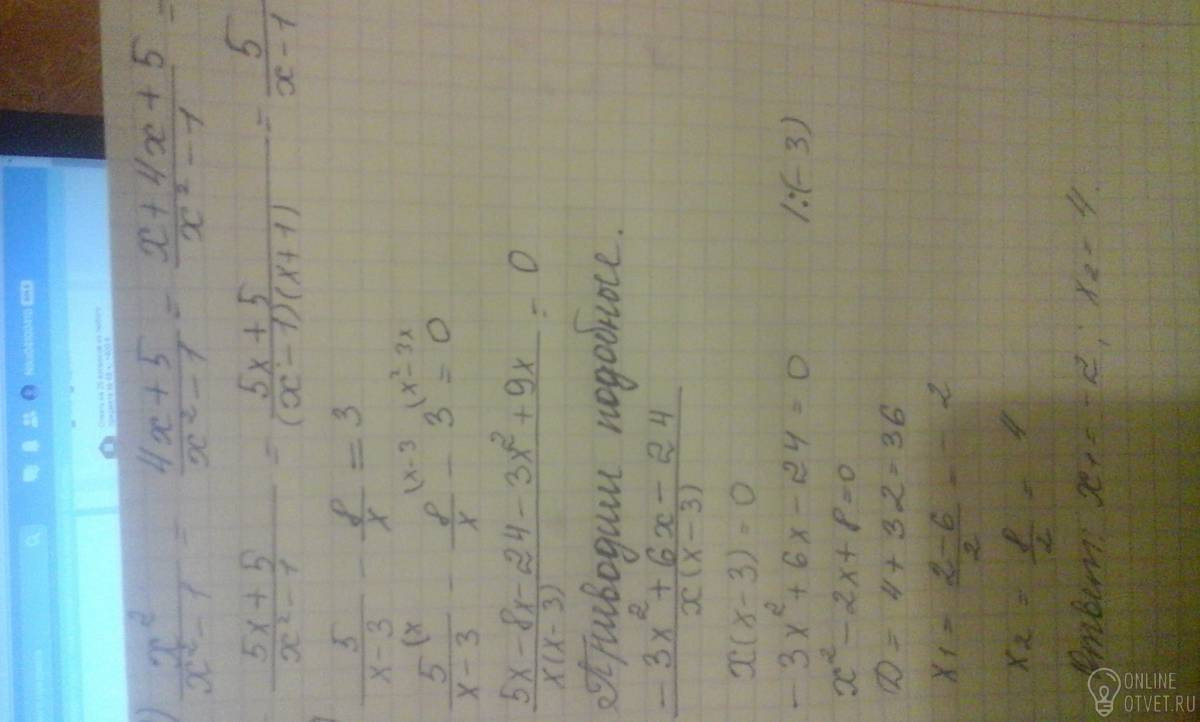 ) x²/(x²-1) = (4x+5)/(x²-1) = (x+4x+5)/(x²-1) =
(5x+5)/(x²-1) = (5x+5)/((x-1)(x+1)) = 5/(x-1)
)
5/(x-3) - 8/x = 3
5(x/(x-3) - 8(x-3/x - 3(x²-3x = 0
(5x-8x-24-3x²+9x)/(x(x-3)) = 0
Приводим подобные.
(-3x²+6x-24)/(x(x-3))
x(x-3)=0
-3x²+6x-24=0 /:(-3)
x²-2x+8=0
D = 4+32=36
x1 = (2-6)/2 = -2
x2 = 8/2 = 4
Ответ: x1=-2; x2=4.
ONLINE
OTVET.RU